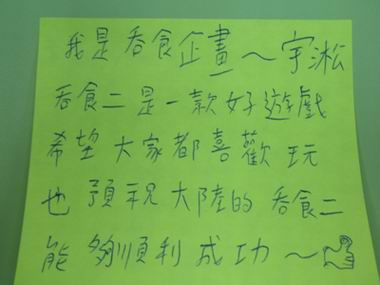 我是吞食企畫～宇淞
吞食二是一款好遊戲
希望大家都喜歡玩
也預祝大陸的吞食二
能夠順利成功～